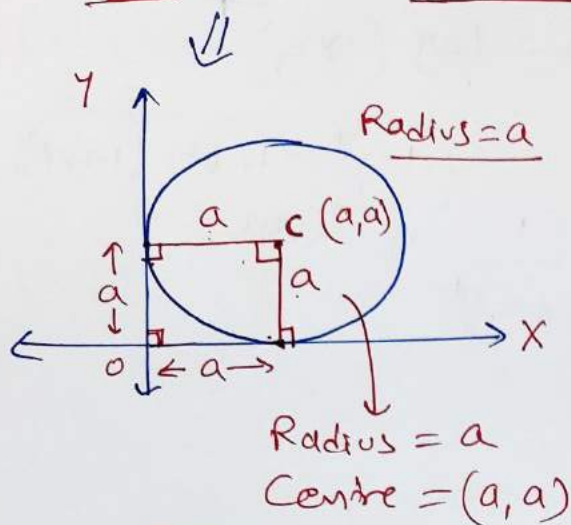 ⇓
Y
Radius = a
a C (a,a)
a
a
O ← a → X
Radius = a
Centre = (a, a)